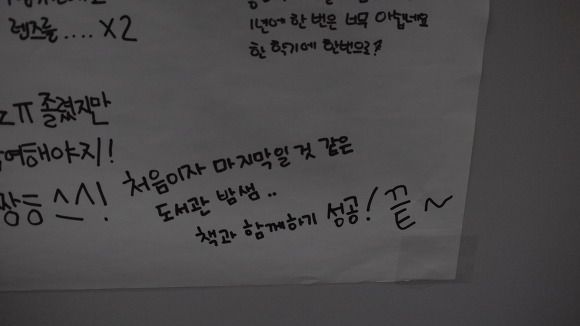 렌즈를.... X2
1년에 한 번은 너무 아쉽네요
한 학기에 한번으로?
졸렸지만
해야지!
^_^!
처음이자 마지막일 것 같은
도서관 밤샘..
책과 함께하기 성공! 끝~